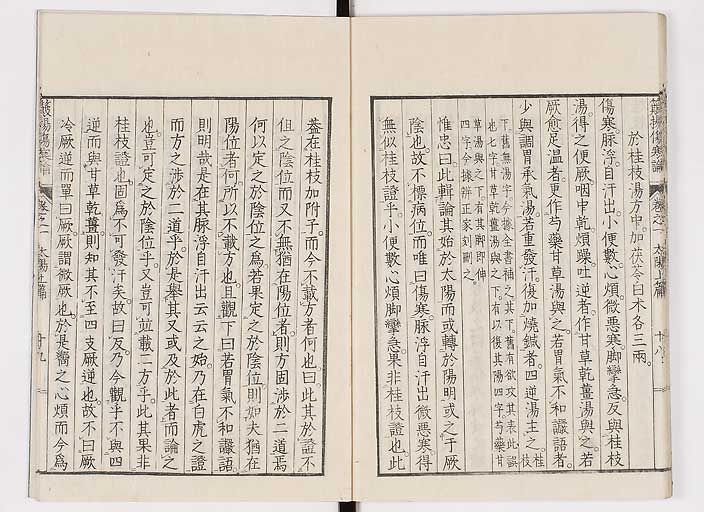 於桂枝湯方中加茯苓白朮各三兩。
傷寒。脉浮。自汗出。小便數。心煩。微惡寒。脚攣急。反與桂枝
湯。得之便厥。咽中乾。煩躁吐逆者。作甘草乾薑湯與之。若
厥愈足溫者。更作芍藥甘草湯與之。若胃氣不和。讝語者。
少與調胃承氣湯。若重發汗。復加燒鍼者。四逆湯主之。桂枝
下。舊無湯字。今據全書補之。其下。舊有欲攻其表此誤
也七字。甘草乾薑湯與之下。有以復其陽四字。芍藥甘
草湯與之下。有其脚即伸
四字。今據辨正家刻刪之。
惟忠曰。此輯論其始於太陽。而或轉於陽明。或之于厥
陰也。故不標病位。而唯曰傷寒。脉浮。自汗出。微惡寒。得
無似桂枝證乎。小便數。心煩。脚攣急。果非桂枝證也。此
蓋在桂枝加附子。而今不載方者何也。曰。此其於證不
但之陰位。而又不無猶在陽位者。則方固涉於二道焉。
何以定之於陰位之爲。若果定之於陰位。則如夫猶在
陽位者何。所以不載方也。且觀下曰若胃氣不和讝語。
則明哉。是在其脉浮自汗出云云之始。乃在白虎之證。
而方之涉於二道乎。於是擧其又或及於此者而論之
也。豈可定之於陰位乎。又豈可竝載二方乎。此其果非
桂枝證也。固爲不可發汗矣。故曰反。乃今觀乎不與四
逆。而與甘草乾薑。則知其不至四支厥逆也。故不曰厥
冷厥逆。而單曰厥。厥謂微厥也。於是嚮之心煩。而今爲
䉤揚傷寒論
卷之一
太陽上篇
十八
䉤揚傷寒論
卷之一
太陽上篇
十九